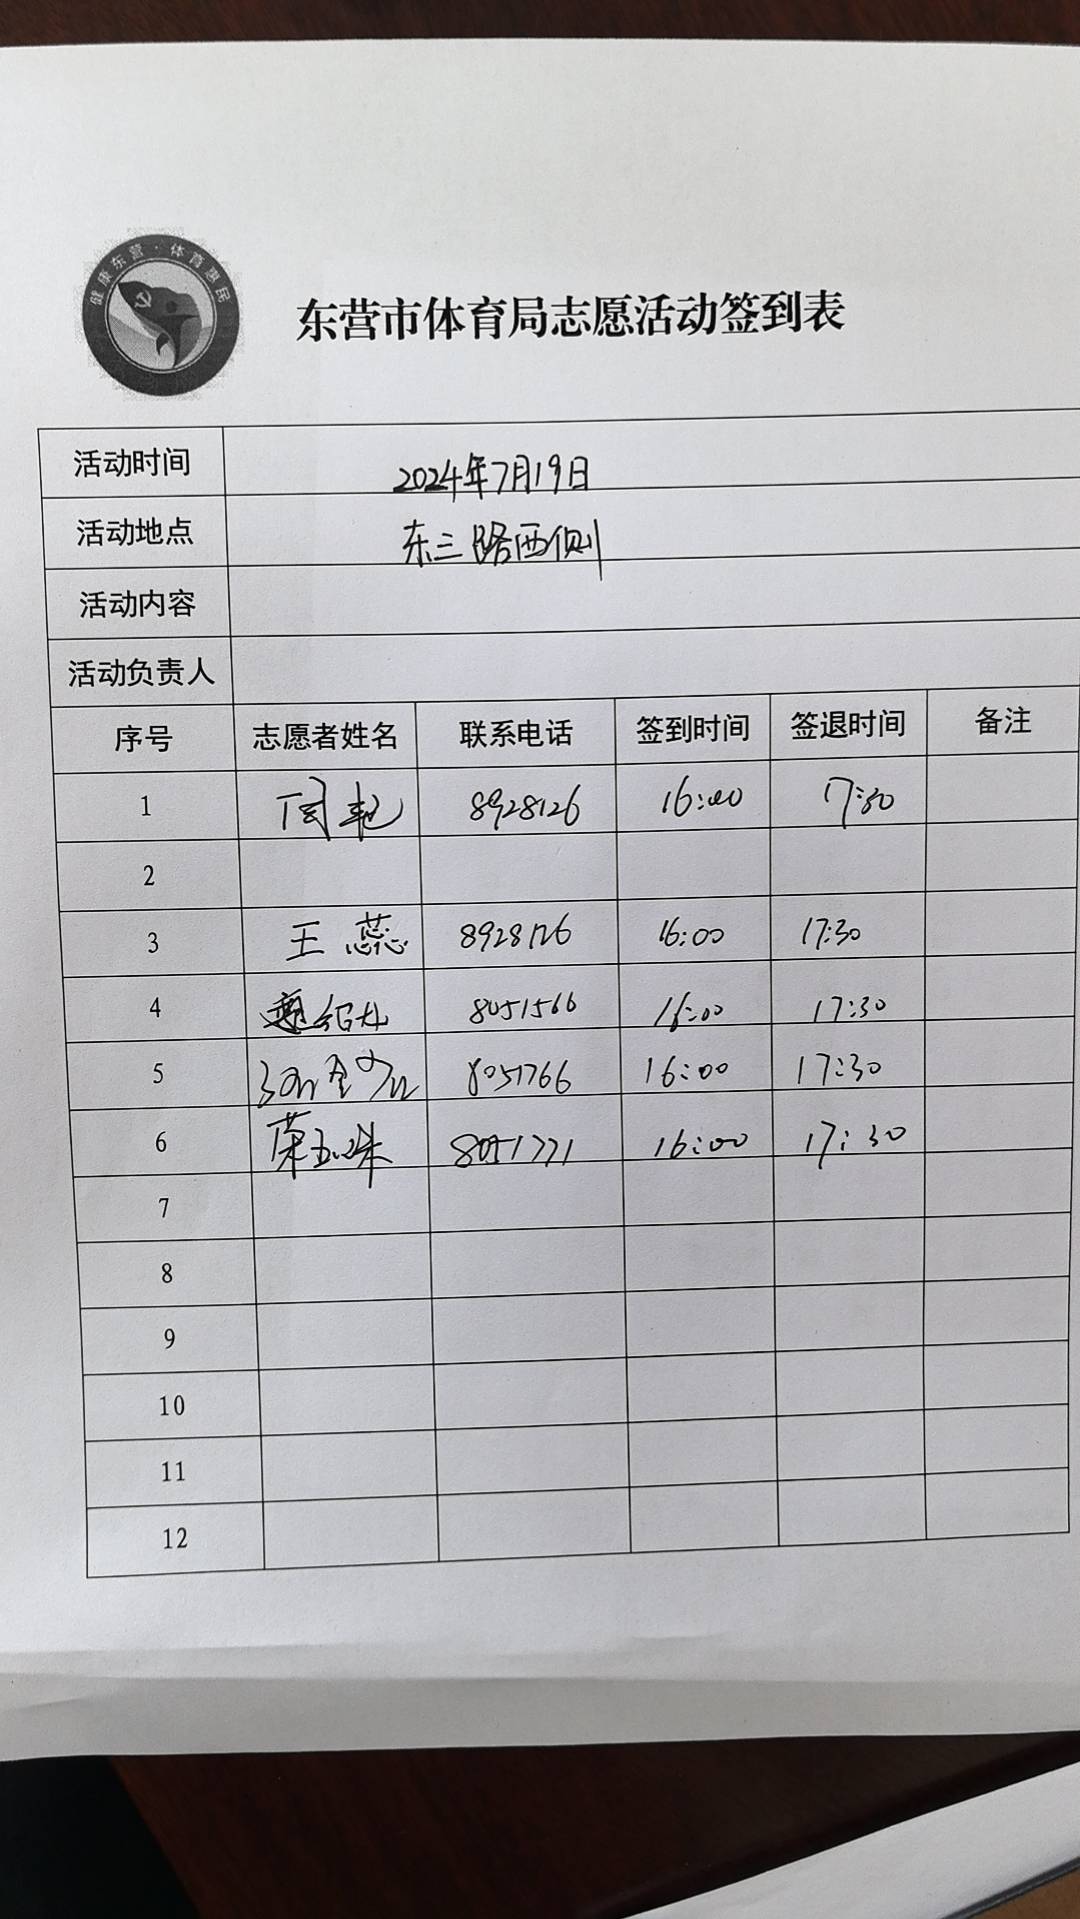 健康东营·体育惠民
东营市体育局志愿活动签到表
活动时间 2024年7月19日
活动地点 东三路西侧
活动内容
活动负责人
序号 志愿者姓名 联系电话 签到时间 签退时间 备注
1 8928126 16:00 17:30
2
3 王蕊 8928126 16:00 17:30
4 8051566 16:00 17:30
5 8051766 16:00 17:30
6 8051771 16:00 17:30
7
8
9
10
11
12